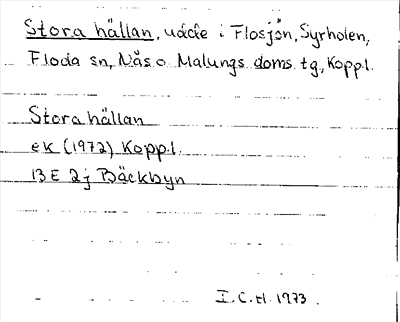 Stora hällan, udde i Flosjön, Syrholen,
Floda sn, Nås o Malungs doms. tg., Kopp.l.
Stora hällan
ek (1972) Kopp.l.
13E 2j Bäckbyn
I.C.H. 1973.